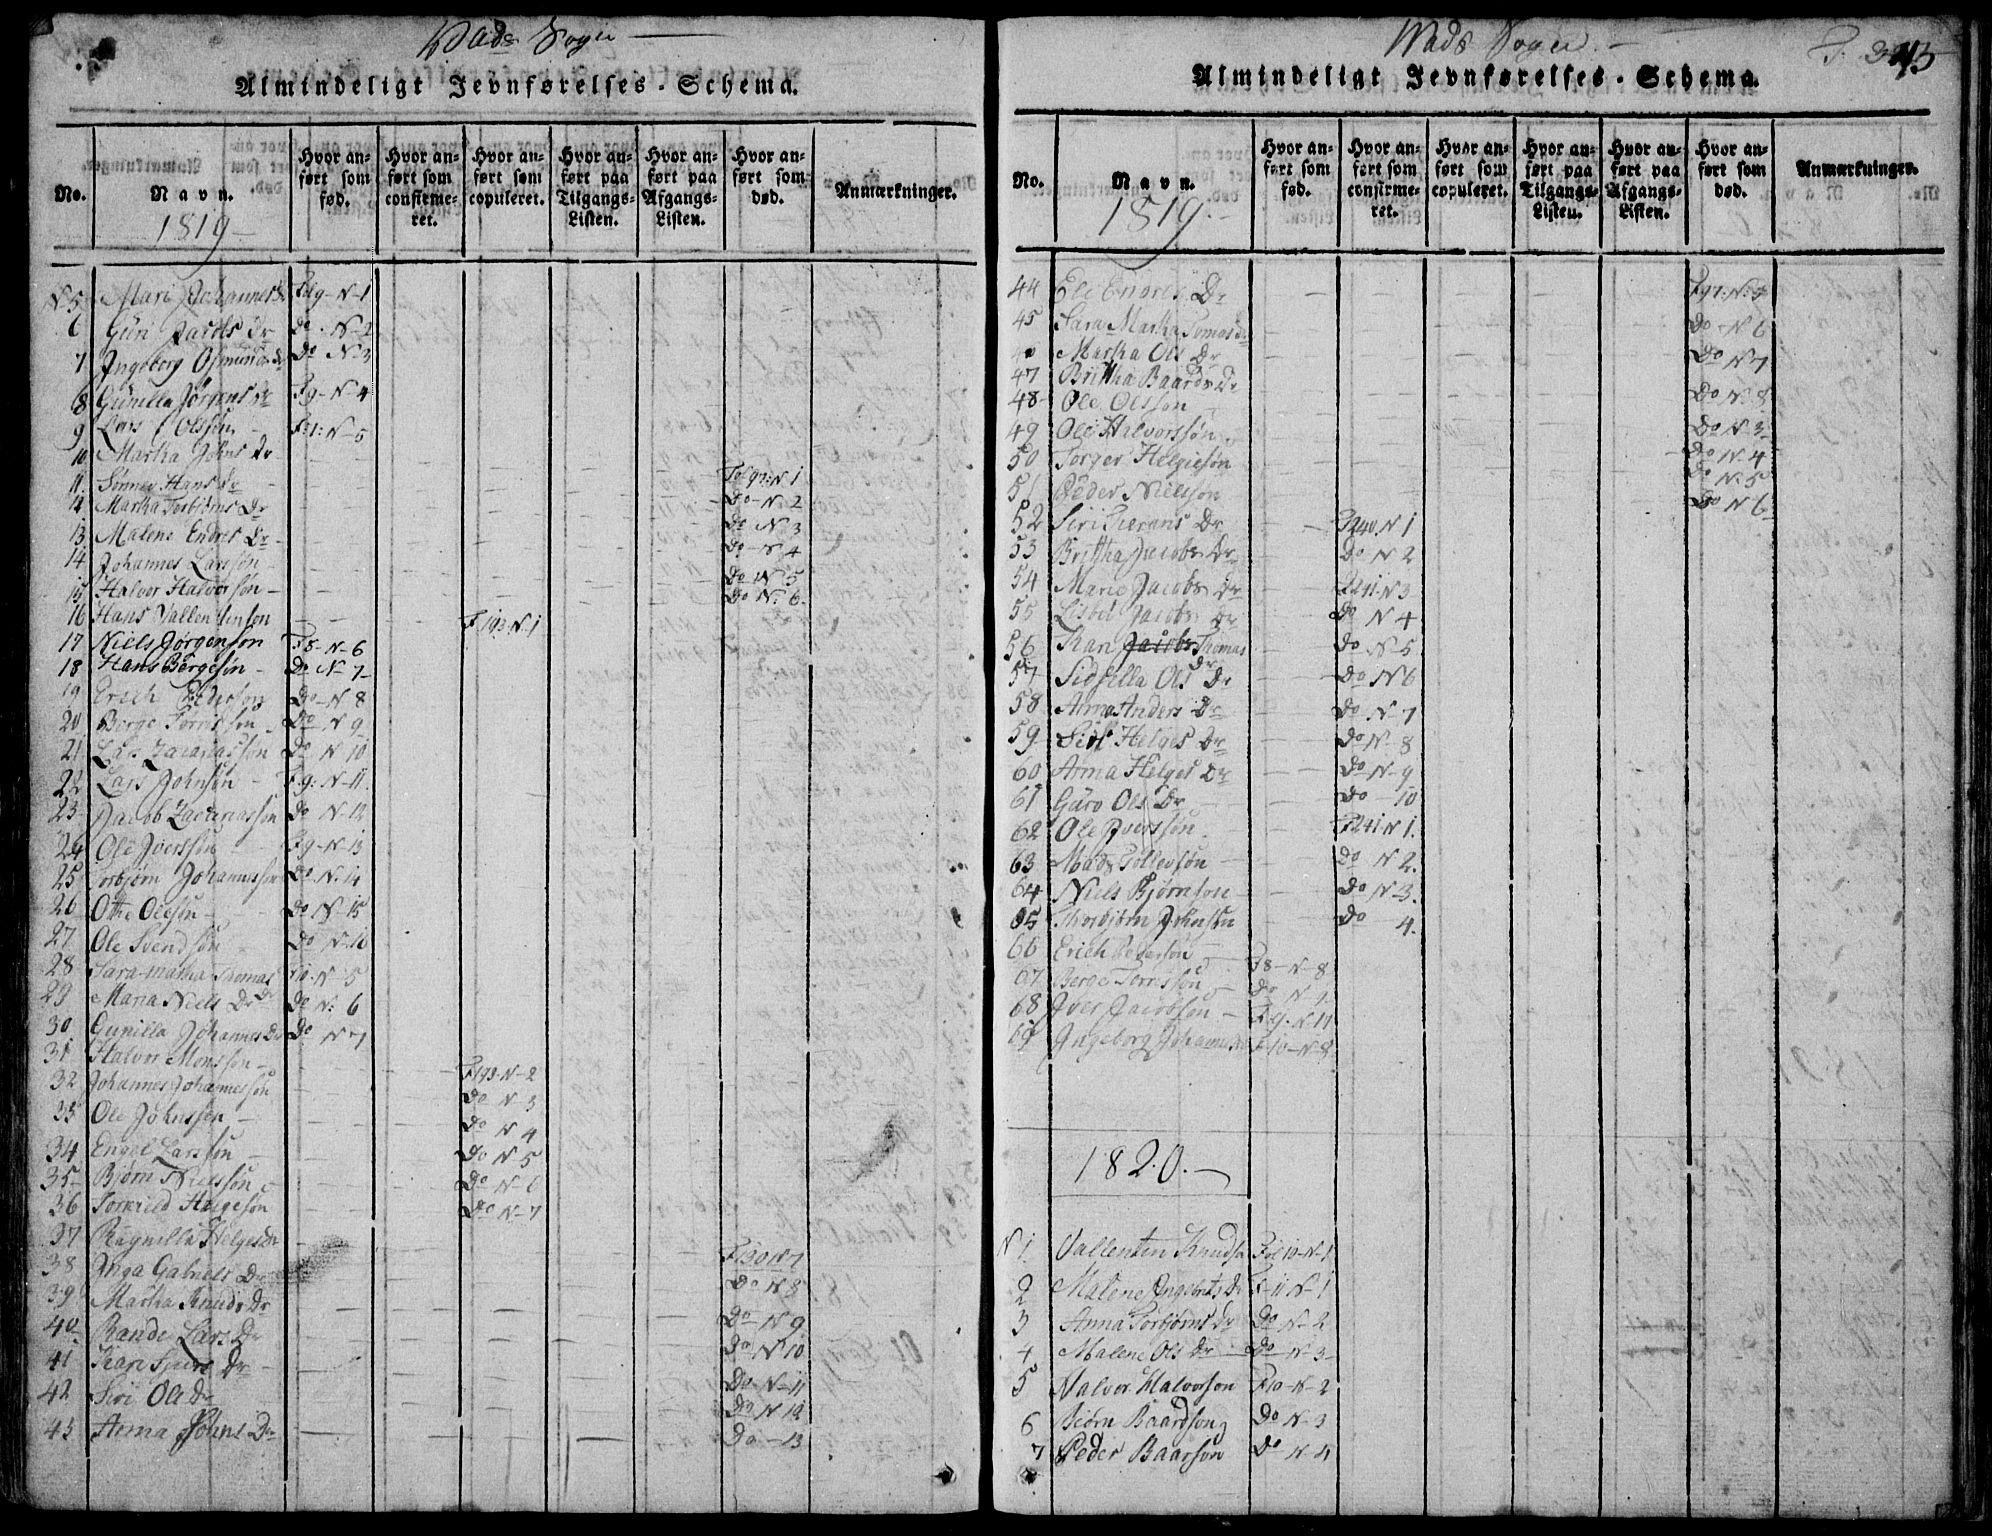 Wads Sogn
Almindeligt Jevnførelses-Schema.
No.
Navn.
1819
Hvor anført som fød.
Hvor anført som confirmeret.
Hvor anført som copuleret.
Hvor anført paa Tilgangs-Listen.
Hvor anført paa Afgangs-Listen.
Hvor anført som død.
Anmærkninger.
N 5 Mari Johannes Dr Fol 9-N-1
6 Guri Jacobs Dr Do-N-2
7 Ingeborg Osmunds Dr Do N 3
8 Gunilla Jørgens Dr F 9-N 4
9 Lars Olssøn N-5
10 Martha Johns Dr
11 Hans Dr Fol 97: N 1
12 Martha Torbiørns Dr Do-N-2
13 Malene Endres Dr Do N 3
14 Johannes Larssøn Do-N 4
15 Halvor Halvorsøn Do N 5
16 Hans Vallentinsøn Do N: 6 F 193 N 1
17 Niels Jørgensøn F 8-N-6
18 Hans Børgesøn Do N-7
19 Erich Pedersøn Do-N 8
20 Børge Tørrissøn Do N 9
21 Lars Zacariassøn Do N 10
22 Lars Johnsøn F 9: N-11
23 Jacob Zachariassøn Do N-12
24 Ole Iverssøn F 9-N-13
25 Torbjørn Johannessøn Do N. 14
26 Otte Olesøn Do N-15
27 Ole Svendsøn Do N-16
28 Sara maria Thomas Dr F 10-N 5
29 Maria Niels Dr Do N: 6
30 Gunilla Johannes Dr Do N-7
31 Halvor Monssøn F 193-N-2
32 Johannes Johannessøn Do N 3
33 Ole Johnssøn Do N 4
34 Engel Larssøn Do N 5
35 Bjørn Nielssøn Do N-6
36 Torkield Helgesøn Do N-7
37 Ragnilla Helges Dr
38 Inga Gabriels Dr Do N 8
39 Martha Knuds Dr Do N 9
40 Rande Lars Dr Do N 10
41 Kari Dr Do-N-11
42 Siri Ols Dr Do N 12
43 Anna Johns Dr Do-13
Wads Sogn.
Almindeligt Jevnførelses-Schema.
No.
Navn.
1819.
Hvor anført som fød.
Hvor anført som confirmeret.
Hvor anført som copuleret.
Hvor anført paa Tilgangs-Listen.
Hvor anført paa Afgangs-Listen.
Hvor anført som død.
Anmærkninger.
44 Eli Endres Dr F 97: N: 5
45 Sara Martha Tomas Dr Do-N 6
Martha Ols Dr Do N 7
47 Brittha Baards Dr Do N. 8
48 Ole Olssøn
49 Ole Halvorssøn Do N 3
50 Torger Helgiesøn Do N 4
51 Peder Nielssøn Do N: 5
52 Siri Dr Do N 6 F 240. N 1
53 Brittha Jacobs Dr Do N 2
54 Marie Jacobs Dr F 241-N 3
55 Lisbet Jacobs Dr Do N 4
56 Kari Jacobs Thomas Dr Do N-5
57 Sidsella Ols Dr Do N 6
58 Anna Anders Dr Do N-7
59 Helges Dr Do N-8
60 Anna Helges Dr Do N-9
61 Guro Ols Dr Do-10
62 Ole Iverssøn F 241-N 1.
63 Mads Tollevsøn Do N 2.
64 Niels Bjørnsøn Do N-3.
65 Thorbiørn Johnsøn Do 4.
66 Erich Pedersøn F 8-N-8
67 Børge Tørrissøn Do N
68 Iver Jacobsøn F 9. N-17
69 Ingeborg Johannes Dr F 10-N-8
1820.
N 1. Vallentin Knuds Fol 10-N-1
2 Malene Ingebrets Dr F-11 N-1
3 Anna Torbjørns Dr Do N-2
4 Malene Ols Dr Do N-3
5 Halvor Halvorsøn F 10-N-2
6 Biørn Baardsøn Do N-3
7 Peder Baarsøn Do N 4